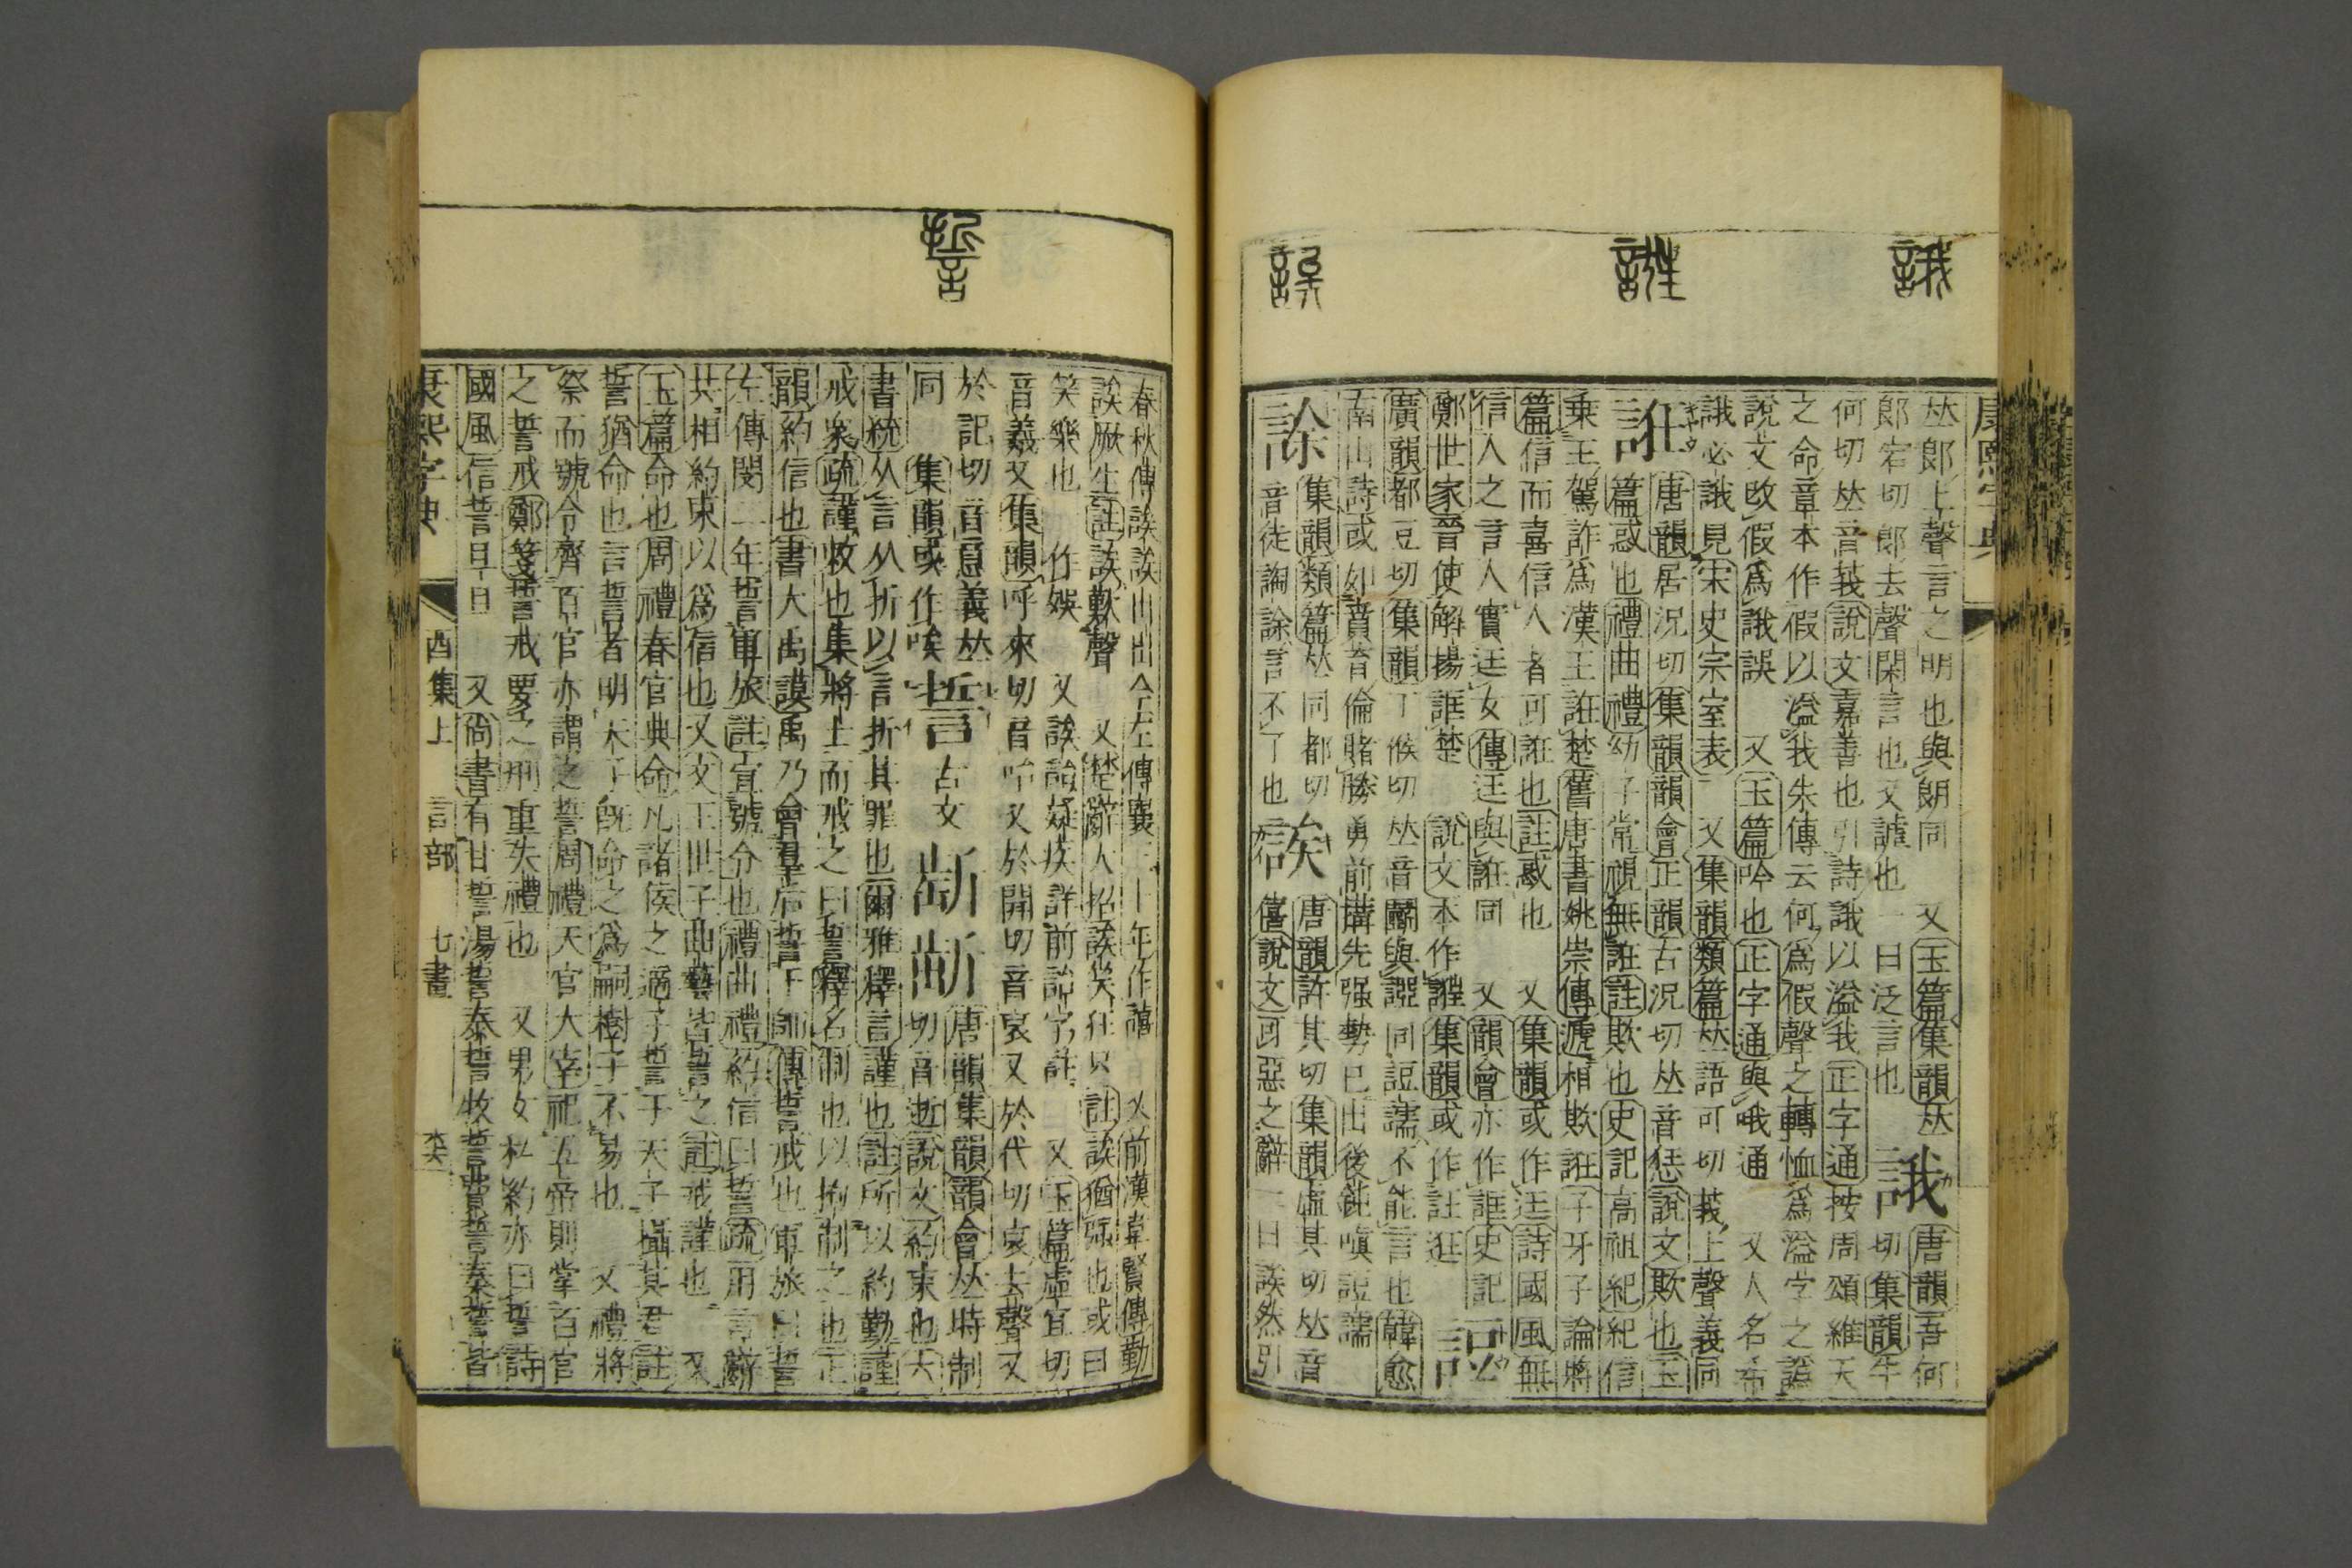 誐
誑
誒
康熙字典
𠀤郎上聲言之明也與朗同 又玉篇集韻𠀤
郎宕切郎去聲閑言也又謔也一曰泛言也 誐 唐韻吾何切集韻牛
何切𠀤音莪說文嘉善也引詩誐以溢我正字通按周頌維天
之命章本作假以溢我朱傳云何爲假聲之轉恤爲溢字之譌
說文改假爲誐誤 又玉篇吟也正字通與哦通 又人名希
誐必誐見宋史宗室表 又集韻類篇𠀤語可切莪上聲義同
誑 唐韻居況切集韻韻會正韻古況切𠀤音恇說文欺也玉
篇惑也禮曲禮幼子常視無誑註欺也史記高祖紀紀信
乗王駕詐爲漢王誑楚舊唐書姚崇傳遞相欺誑子牙子論將
篇信而喜信人者可誑也註惑也 又集韻或作迋詩國風無
信人之言人實迋女傳迋與誑同 又韻會亦作誆史記
鄭世家晉使解揚誆楚 說文本作𧫢集韻或作註逛 䛠
廣韻都豆切集韻丁候切𠀤音鬭與䛠同䛠譳不能言也韓愈
南山詩或如賁育倫賭勝勇前搆先强勢已出後鈍嗔䛠譳
䛢 集韻類篇𠀤同都切音徒詾䛢言不了也 誒 唐韻許其切集韻虛其切𠀤音僖說文可惡之辭一曰誒然引
誓
春秋傳誒誒出出今左傳襄三十年作譆 又前漢韋賢傳勤
誒厥生註誒歎聲 又楚辭大招誒笑狂只註誒猶强也或曰
笑樂也一作娭 又誒詒疑疾詳前詒字註 又玉篇虛宜切
音羲又集韻呼來切音咍又於開切音哀又於代切哀去聲又
於記切音意義𠀤同 集韻或作唉 誓 古文 唐韻集韻韻會𠀤時制切音逝說文約束也六
書統从言从折以言折其罪也爾雅釋言謹也註所以約勤謹
戒衆疏謹敕也集將上而戒之曰誓釋名制也以拘制之也正
韻約信也書大禹謨禹乃會羣后誓于師傳誓戒也軍旅曰誓
左傳閔二年誓軍旅註宣號令也禮曲禮約信曰誓疏用言辭
共相約束以爲信也又文王世子曲藝皆誓之註戒謹也 又
玉篇命也周禮春官典命凡諸侯之適子誓于天子攝其君註
誓猶命也言誓者明天子旣命之爲嗣樹子不易也 又禮將
祭而號令齊百官亦謂之誓周禮天官大宰祀五帝則掌百官
之誓戒鄭箋誓戒要之刑重失禮也 又男女私約亦曰誓詩
國風信誓旦旦 又尙書有甘誓湯誓泰誓牧誓費誓秦誓皆
康熙字典 酉集上 言部 七畫